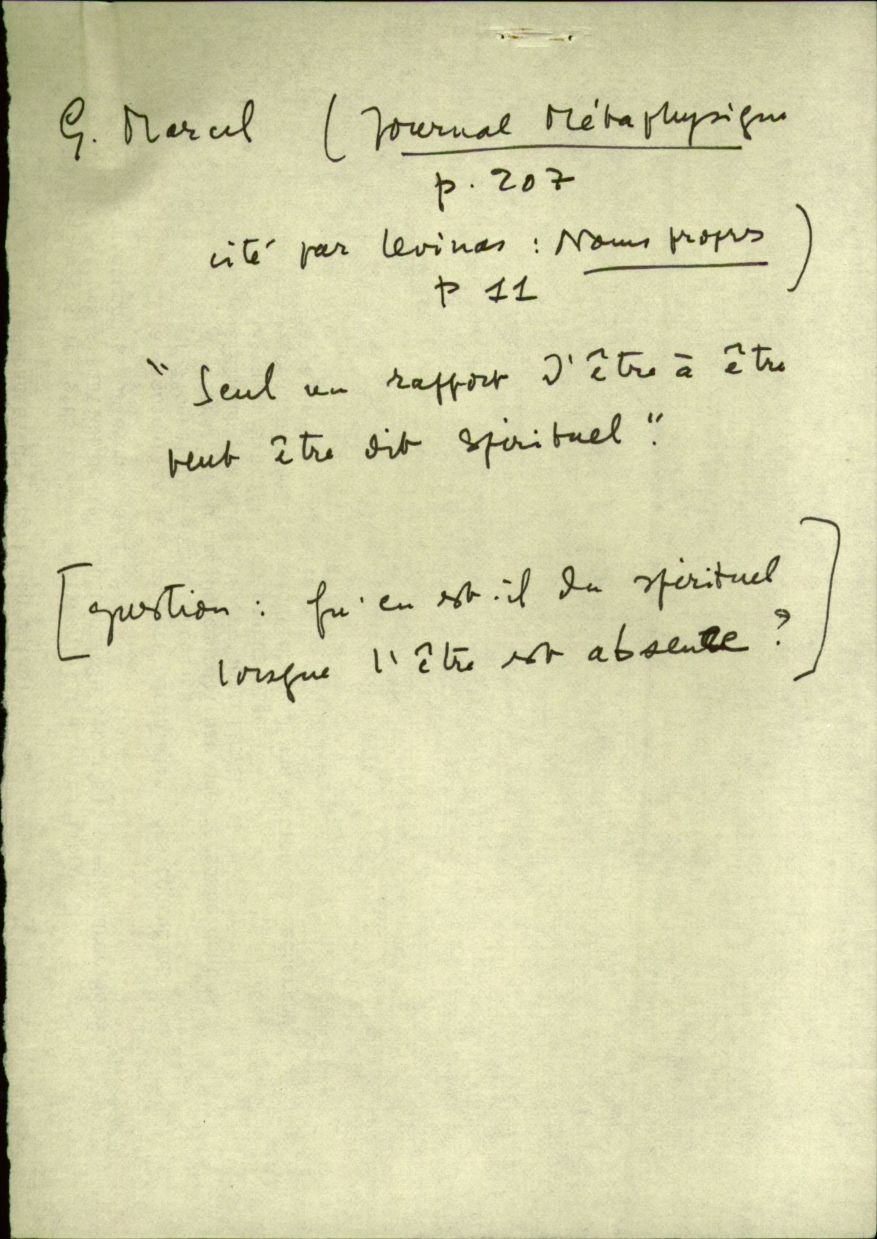 G. Marcel ( Journal Métaphysique
p. 207
cité par Levinas : Noms propres )
p 11
"Seul un rapport d'être à être
peut être dit spirituel".
[question : qu'en est-il du spirituel
lorsque l'être est absence ?]